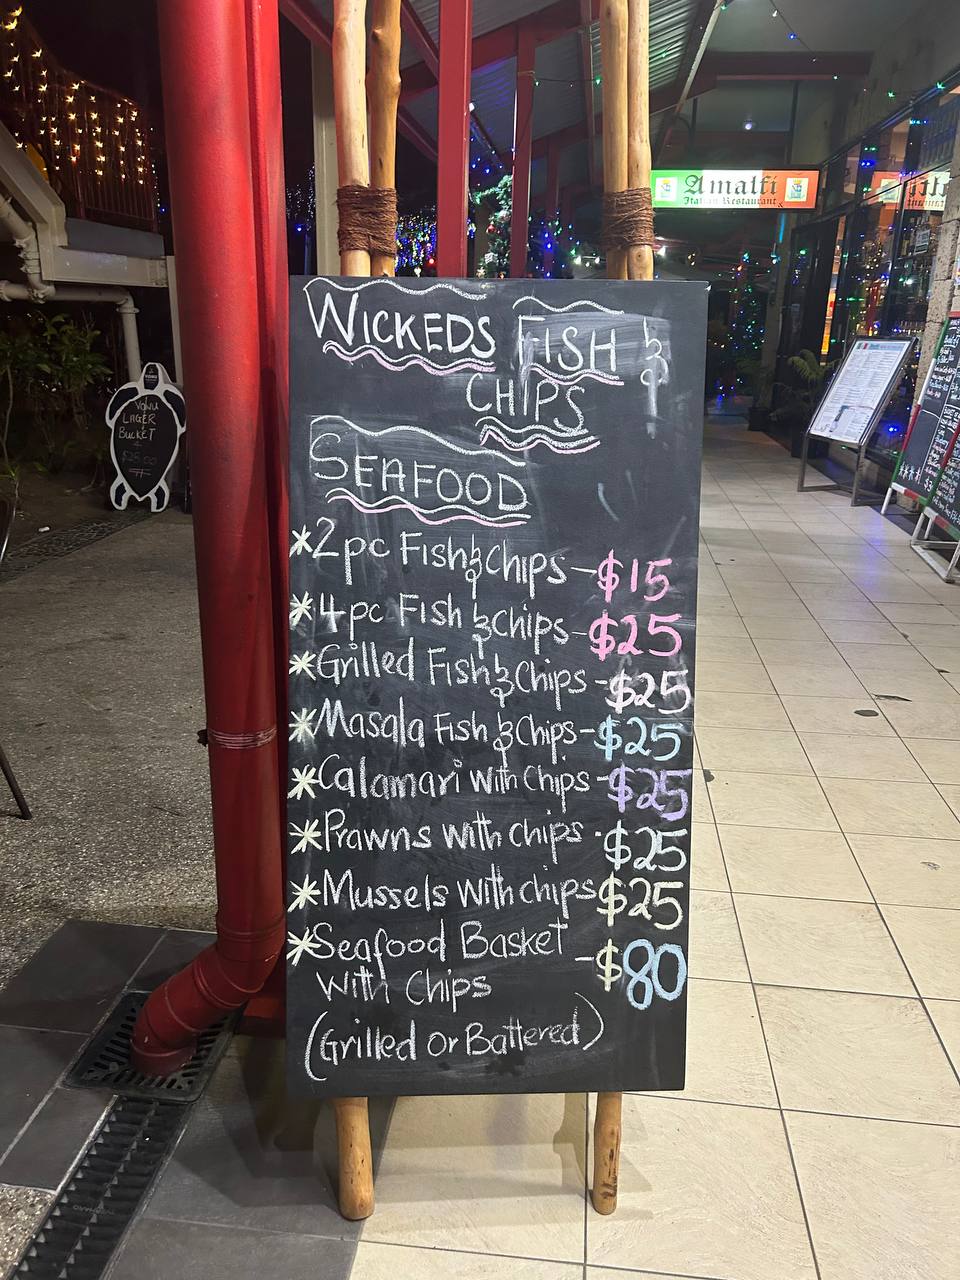 Amalfi
Italian Restaurant
WICKEDS FISH &
CHIPS
SEAFOOD
*2pc Fish & Chips - $15
*4pc Fish & Chips - $25
*Grilled Fish & Chips - $25
*Masala Fish & Chips - $25
*Calamari with Chips - $25
*Prawns with Chips - $25
*Mussels with chips $25
*Seafood Basket
with Chips - $80
(Grilled or Battered)
VONU
LAGER
BUCKET